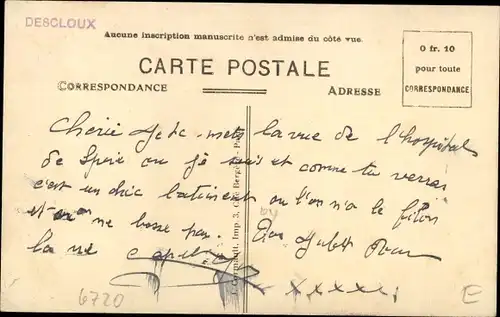 DESCLOUX
Aucune inscription manuscrite n'est admise du côté vue.
0 fr. 10
pour toute
CORRESPONDANCE
CARTE POSTALE
CORRESPONDANCE
ADRESSE
Cherie je te mets la vue de l'hospital
de Spire ou je suis et comme tu verras
c'est un chic batiment ou l'on n'a le filon
et on ne bosse pas.
la vie
Imp. 3,
xxxxx
6720
E